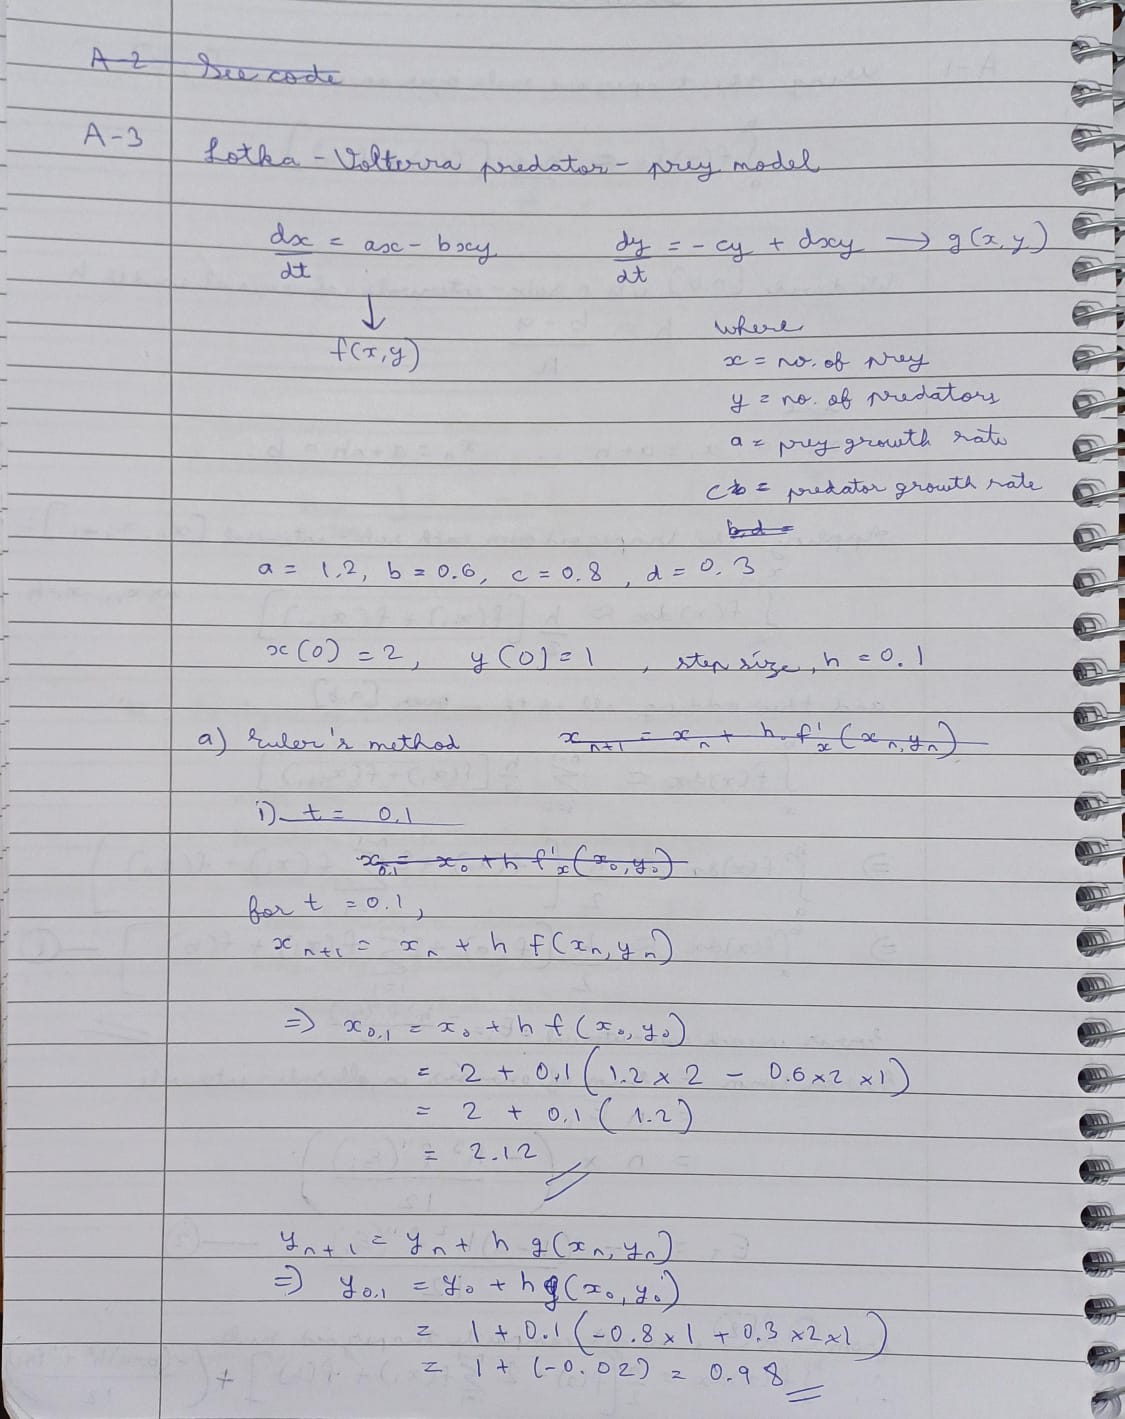 A-2 See code
A-3 Lotka-Volterra predator-prey model
dx/dt = ax - bxy dy/dt = -cy + dxy → g(x,y)
↓
f(x,y)
where
x = no. of prey
y = no. of predators
a = prey growth rate
c = predator growth rate
b,d =
a = 1.2, b = 0.6, c = 0.8, d = 0.3
x(0) = 2, y(0) = 1, step size, h = 0.1
a) Euler's method x_{n+1} = x_n + h.f'_x(x_n,y_n)
i) t = 0.1
x_{0.1} = x_0 + h f'_x(x_0,y_0)
for t = 0.1,
x_{n+1} = x_n + h f(x_n,y_n)
⇒ x_{0.1} = x_0 + h f(x_0,y_0)
= 2 + 0.1(1.2×2 - 0.6×2×1)
= 2 + 0.1(1.2)
= 2.12
y_{n+1} = y_n + h g(x_n,y_n)
⇒ y_{0.1} = y_0 + h g(x_0,y_0)
= 1 + 0.1(-0.8×1 + 0.3×2×1)
= 1 + (-0.02) = 0.98